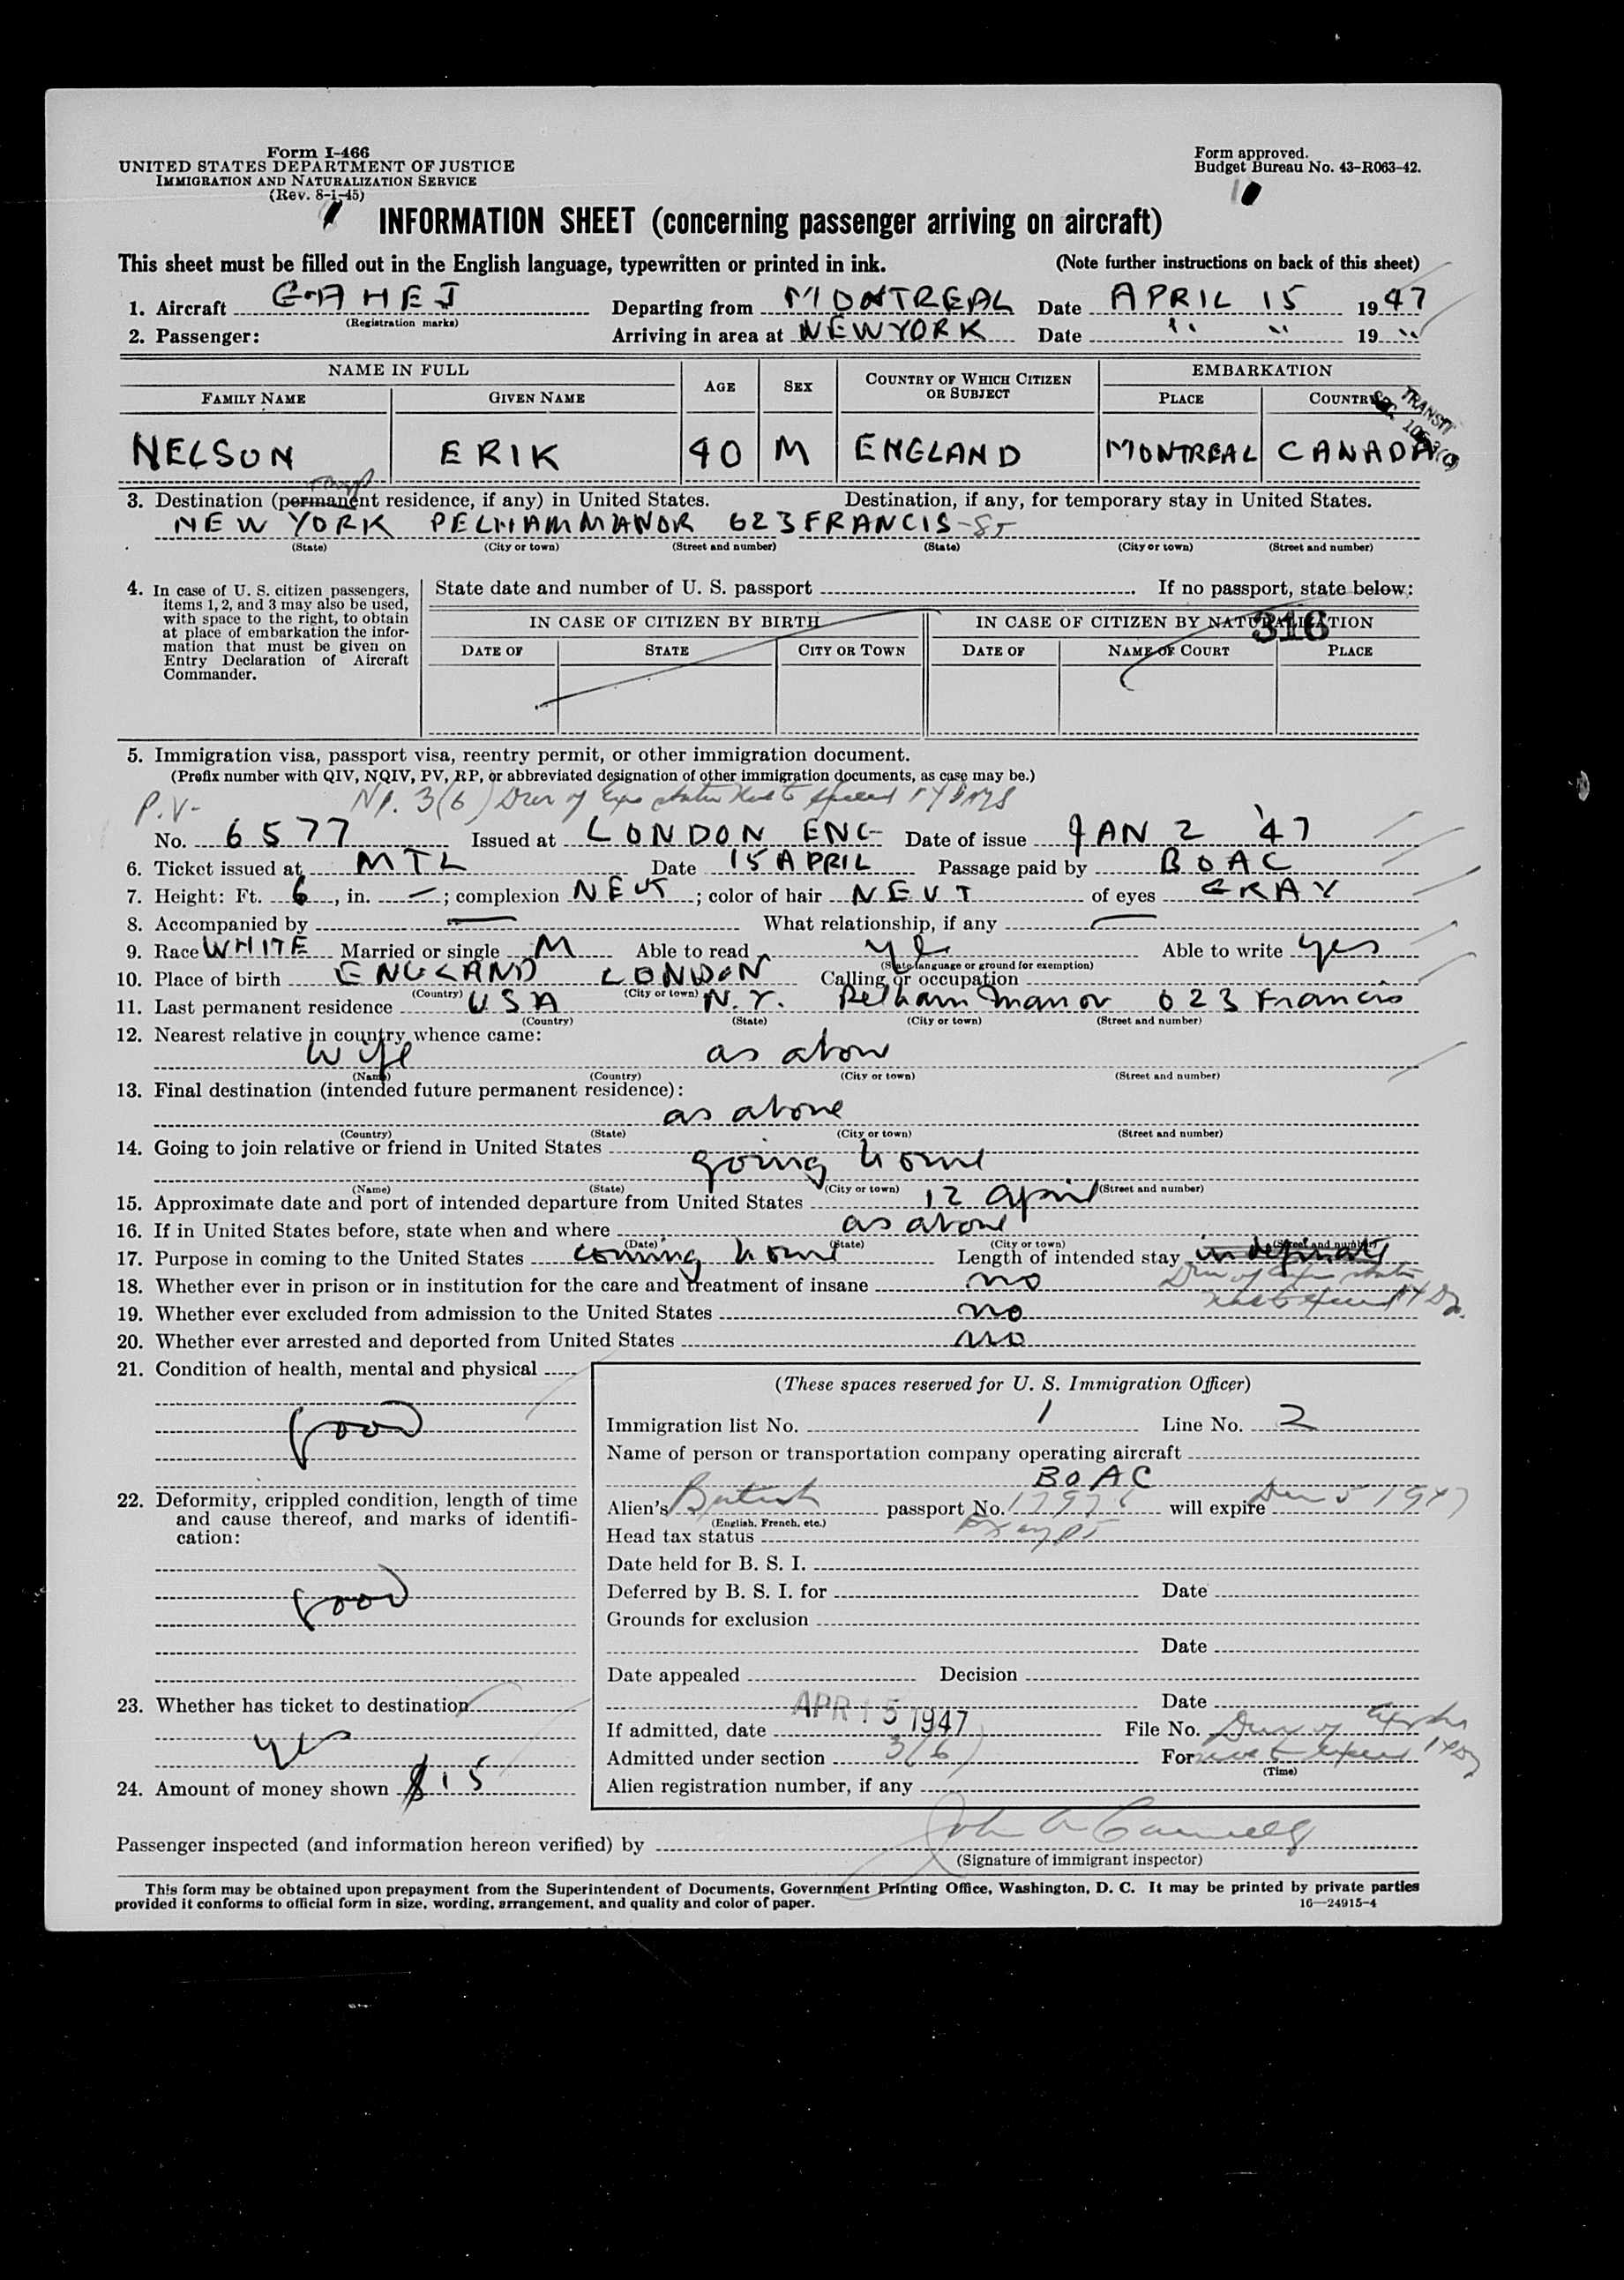 Form I-466
UNITED STATES DEPARTMENT OF JUSTICE
IMMIGRATION AND NATURALIZATION SERVICE
(Rev. 8-1-45)
Form approved.
Budget Bureau No. 43-R063-42.
INFORMATION SHEET (concerning passenger arriving on aircraft)
This sheet must be filled out in the English language, typewritten or printed in ink. (Note further instructions on back of this sheet)
1. Aircraft G-AHEJ Departing from MONTREAL Date APRIL 15 1947
(Registration marks)
2. Passenger: Arriving in area at NEWYORK Date " " 19 "
NAME IN FULL AGE SEX COUNTRY OF WHICH CITIZEN OR SUBJECT EMBARKATION
FAMILY NAME GIVEN NAME PLACE COUNTRY
TRANSIT
NELSON ERIK 40 M ENGLAND MONTREAL CANADA
3. Destination (permanent residence, if any) in United States. Destination, if any, for temporary stay in United States.
NEW YORK PELHAM MANOR 623 FRANCIS-ST
(State) (City or town) (Street and number) (State) (City or town) (Street and number)
4. In case of U. S. citizen passengers, items 1, 2, and 3 may also be used, with space to the right, to obtain at place of embarkation the information that must be given on Entry Declaration of Aircraft Commander.
State date and number of U. S. passport If no passport, state below:
316
IN CASE OF CITIZEN BY BIRTH IN CASE OF CITIZEN BY NATURALIZATION
DATE OF STATE CITY OR TOWN DATE OF NAME OF COURT PLACE
5. Immigration visa, passport visa, reentry permit, or other immigration document.
(Prefix number with QIV, NQIV, PV, RP, or abbreviated designation of other immigration documents, as case may be.)
P.V- 3(6)
No. 6577 Issued at LONDON ENG Date of issue JAN 2 '47
6. Ticket issued at MTL Date 15 APRIL Passage paid by BOAC
7. Height: Ft. 6, in. —; complexion NEUT; color of hair NEUT of eyes GRAY
8. Accompanied by — What relationship, if any —
9. Race WHITE Married or single M Able to read yes Able to write yes
(State language or ground for exemption)
10. Place of birth ENGLAND LONDON Calling or occupation
(Country) (City or town)
11. Last permanent residence USA N.Y. Pelham Manor 623 Francis
(Country) (State) (City or town) (Street and number)
12. Nearest relative in country whence came:
Wife as above
(Name) (Country) (City or town) (Street and number)
13. Final destination (intended future permanent residence):
as above
(Country) (State) (City or town) (Street and number)
14. Going to join relative or friend in United States
going home
(Name) (State) (City or town) (Street and number)
15. Approximate date and port of intended departure from United States 12 April
16. If in United States before, state when and where as above
(Date) (State) (City or town) (Street and number)
17. Purpose in coming to the United States coming home Length of intended stay
18. Whether ever in prison or in institution for the care and treatment of insane no
19. Whether ever excluded from admission to the United States no
20. Whether ever arrested and deported from United States no
21. Condition of health, mental and physical
Good
22. Deformity, crippled condition, length of time and cause thereof, and marks of identification:
Good
23. Whether has ticket to destination
yes
24. Amount of money shown $15
(These spaces reserved for U. S. Immigration Officer)
Immigration list No. 1 Line No. 2
Name of person or transportation company operating aircraft
BOAC
Alien's British passport No. will expire Dec 5 1947
(English, French, etc.)
Head tax status Exempt
Date held for B. S. I.
Deferred by B. S. I. for Date
Grounds for exclusion
Date
Date appealed Decision
Date
If admitted, date APR 15 1947 File No.
Admitted under section 3(6) For
(Time)
Alien registration number, if any
Passenger inspected (and information hereon verified) by
(Signature of immigrant inspector)
This form may be obtained upon prepayment from the Superintendent of Documents, Government Printing Office, Washington, D. C. It may be printed by private parties
provided it conforms to official form in size, wording, arrangement, and quality and color of paper. 16—24915-4